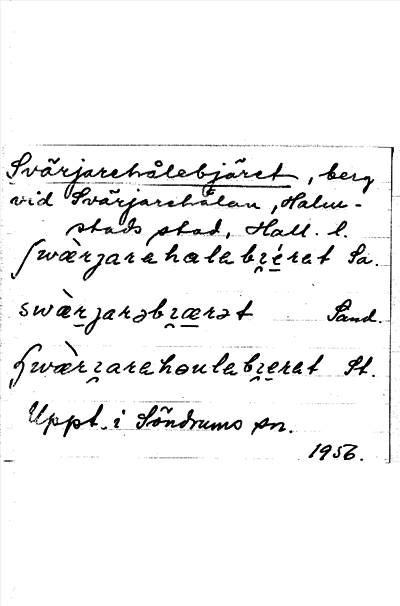 Svärjarehålebjäret, berg
vid Svärjarehålan, Halm-
stads stad, Hall. l.
ʃwὰrjarahalabi̯érat Sä.
swὰrjarəbi̯ærət Sand.
ʃwæ̀ri̯arahəulabi̯erat St.
Uppt. i Söndrums sn.
1956.